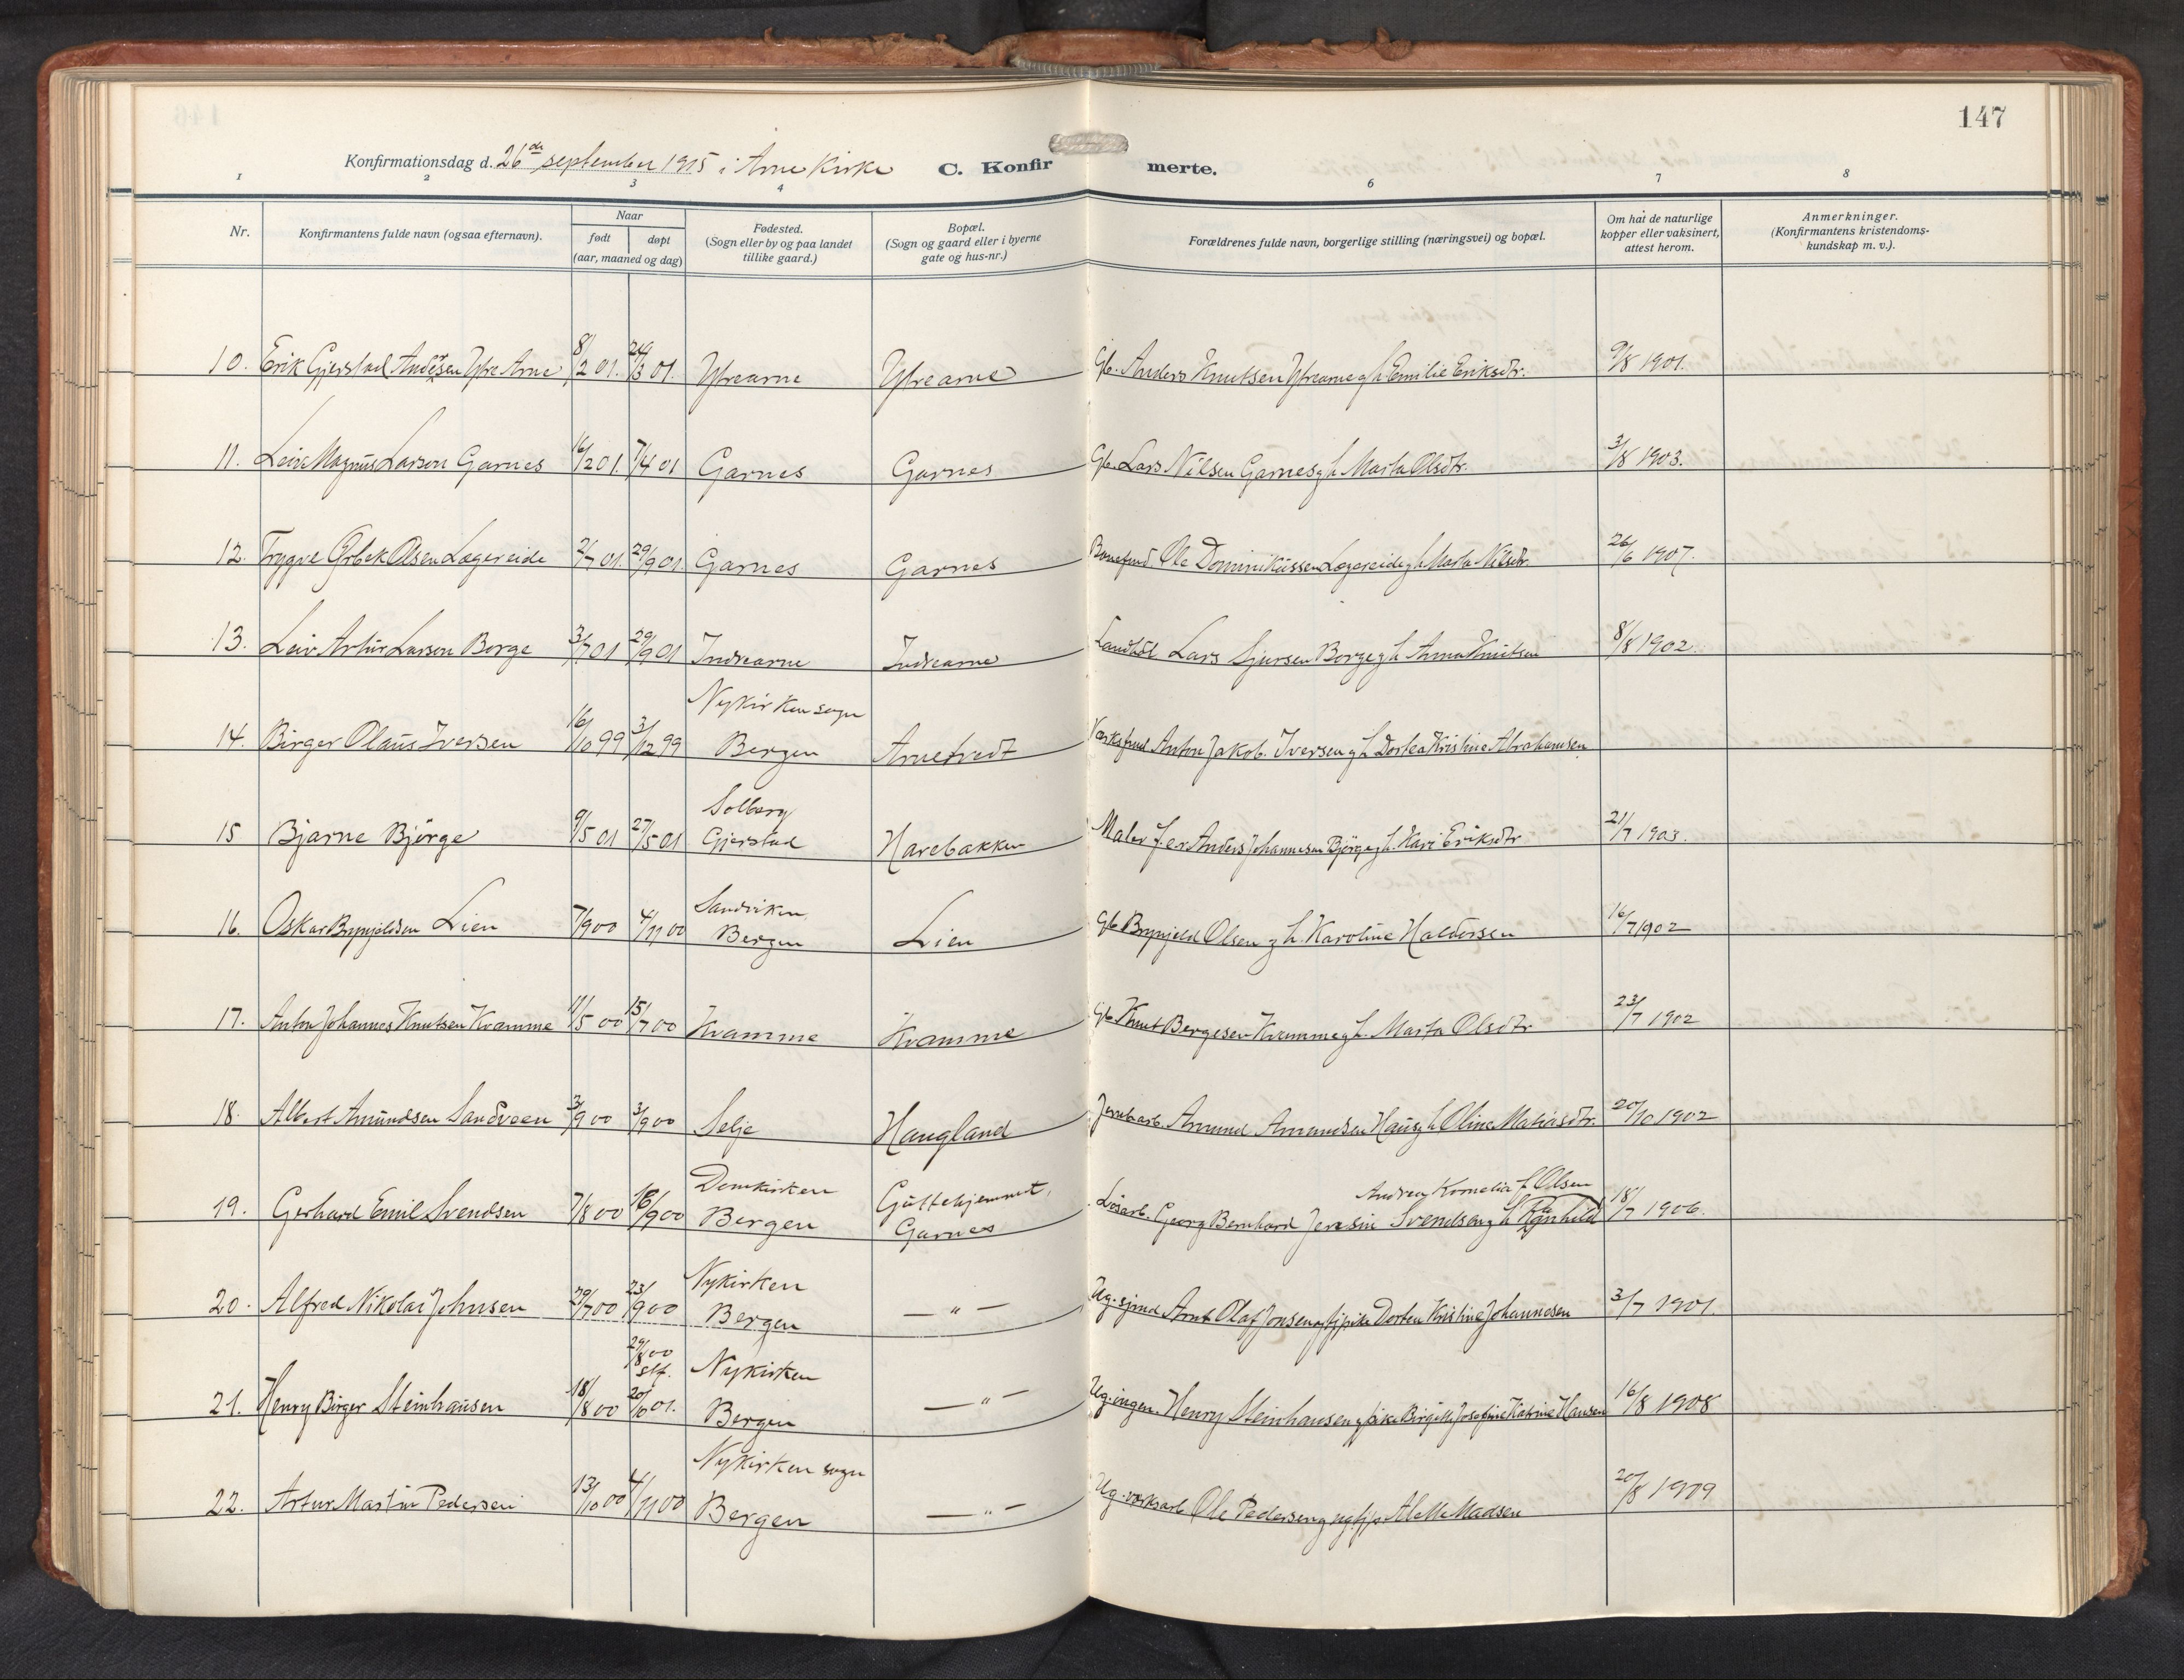 147
Konfirmationsdag d. 26de september 1915 i Arne Kirke C. Konfirmerte.
1 2 3 4 6 7 8
Nr. Konfirmantens fulde navn (ogsaa efternavn). Naar født døpt (aar, maaned og dag) Fødested. (Sogn eller by og paa landet tillike gaard.) Bopæl. (Sogn og gaard eller i byerne gate og hus-nr.) Forældrenes fulde navn, borgerlige stilling (næringsvei) og bopæl. Om hat de naturlige kopper eller vaksinert, attest herom. Anmerkninger. (Konfirmantens kristendoms-kundskap m. v.).
10. Erik Gjerstad Andersen Ytre Arne 8/2 01. 24/3 01. Ytrearne Ytrearne Gb. Anders Knutsen Ytrearne g h Emilie Eriksdtr. 9/8 1901.
11. Leiv Magnus Larsen Garnes 16/2 01. 7/4 01 Garnes Garnes Gb. Lars Nilsen Garnes g h Marta Olsdtr. 3/8 1903.
12. Trygve Ørbek Olsen Lægereide 2/7 01. 29/9 01. Garnes Garnes Ole Dominikussen Lægereide g h Marta Nilsdtr. 26/6 1907.
13. Leiv Artur Larsen Borge 3/7 01 29/9 01 Indrearne Indrearne Landhdl Lars Sjursen Borge g h Anna Knutsen 8/8 1902.
Nykirken sogn
14. Birger Olaus Iversen 16/10 99 3/12 99 Bergen Arnetvedt Anton Jakob Iversen g h Dortea Kristine Abrahamsen
Solberg
15 Bjarne Bjørge 9/5 01 27/5 01 Gjerstad Harebakken Maler f. ex Anders Johannesen Bjørge g h. Kari Eriksdtr 21/7 1903.
Sandviken
16. Oskar Brynjeldsen Lien 7/9 00 4/11 00 Bergen Lien Gb Brynjeld Olsen g h. Karoline Haldorsen 16/7 1902
17. Anton Johannes Knutsen Kvamme 11/5 00 15/7 00 Kvamme Kvamme Gb Knut Bergesen Kvamme g h. Marta Olsdtr 23/7 1902
18. Albert Amundsen Sandveen 3/9 00 3/9 00 Selje Haugland Jernbarb. Amund Amundsen Haus g h Oline Matiasdtr. 20/10 1902
Domkirken Guttehjemmet, Andrea Kornelia f. Olsen
19. Gerhard Emil Svendsen 7/8 00 16/9 00 Bergen Garnes Løsarb. Georg Bernhard Jensin Svendsen g h Ragnhild 18/7 1906.
Nykirken
20. Alfred Nikolai Johnsen 29/7 00 23/9 00 Bergen — " — Ug. sjmd Arnt Olaf Jonsen og fr pike Dortea Kristine Johannesen 3/7 1901.
29/8 00 stf. Nykirken
21. Henry Birger Steinhausen 18/8 00 20/10 01. Bergen — " — Ug. ingen. Henry Steinhausen g pike Birgitte Josefine Katrine Hansen 16/8 1908
Nykirken sogn
22. Artur Martin Pedersen 13/10 00 4/11 00 Bergen — " — Ug. værksarb Ole Pedersen Madsen 20/8 1909